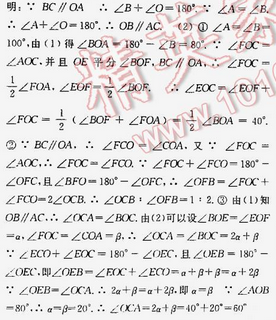 明：∵ BC∥OA ∴ ∠B+∠O=180° ∵ ∠A=∠B.
∴ ∠A+∠O=180°. ∴ OB∥AC. (2) ① ∠A=∠B=
100°,由(1)得∠BOA=180°-∠B=80°. ∵ ∠FOC=
∠AOC,并且 OE 平分 ∠BOF, BC∥OA, ∴ ∠FOC=
1/2∠FOA, ∠EOF=1/2∠BOF. ∴ ∠EOC=∠EOF+
∠FOC=1/2(∠BOF+∠FOA)=1/2∠BOA=40°.
② ∵ BC∥OA, ∴ ∠FCO=∠COA, 又∵ ∠FOC=
∠AOC, ∴ ∠FOC=∠FCO. ∵ ∠FOC+∠FCO=180°-
∠OFC,且∠BFO=180°-∠OFC, ∴ ∠OFB=∠FOC+
∠FCO=2∠OCB. ∴ ∠OCB:∠OFB=1:2. ③ 由(1)知
OB∥AC, ∴ ∠OCA=∠BOC. 由(2)可以设∠BOE=∠EOF
=α, ∠FOC=∠COA=β, ∴ ∠OCA=∠BOC=2α+β
∵ ∠ECO+∠EOC=180°-∠OEC, 且∠OEB=180°-
∠OEC, 即∠OEB=∠EOC+∠ECO=α+β+β=α+2β
∵ ∠OEB=∠OCA. ∴ 2α+β=α+2β,即 α=β ∵ ∠AOB
=80°. ∴ α=β=20°. ∴ ∠OCA=2α+β=40°+20°=60°